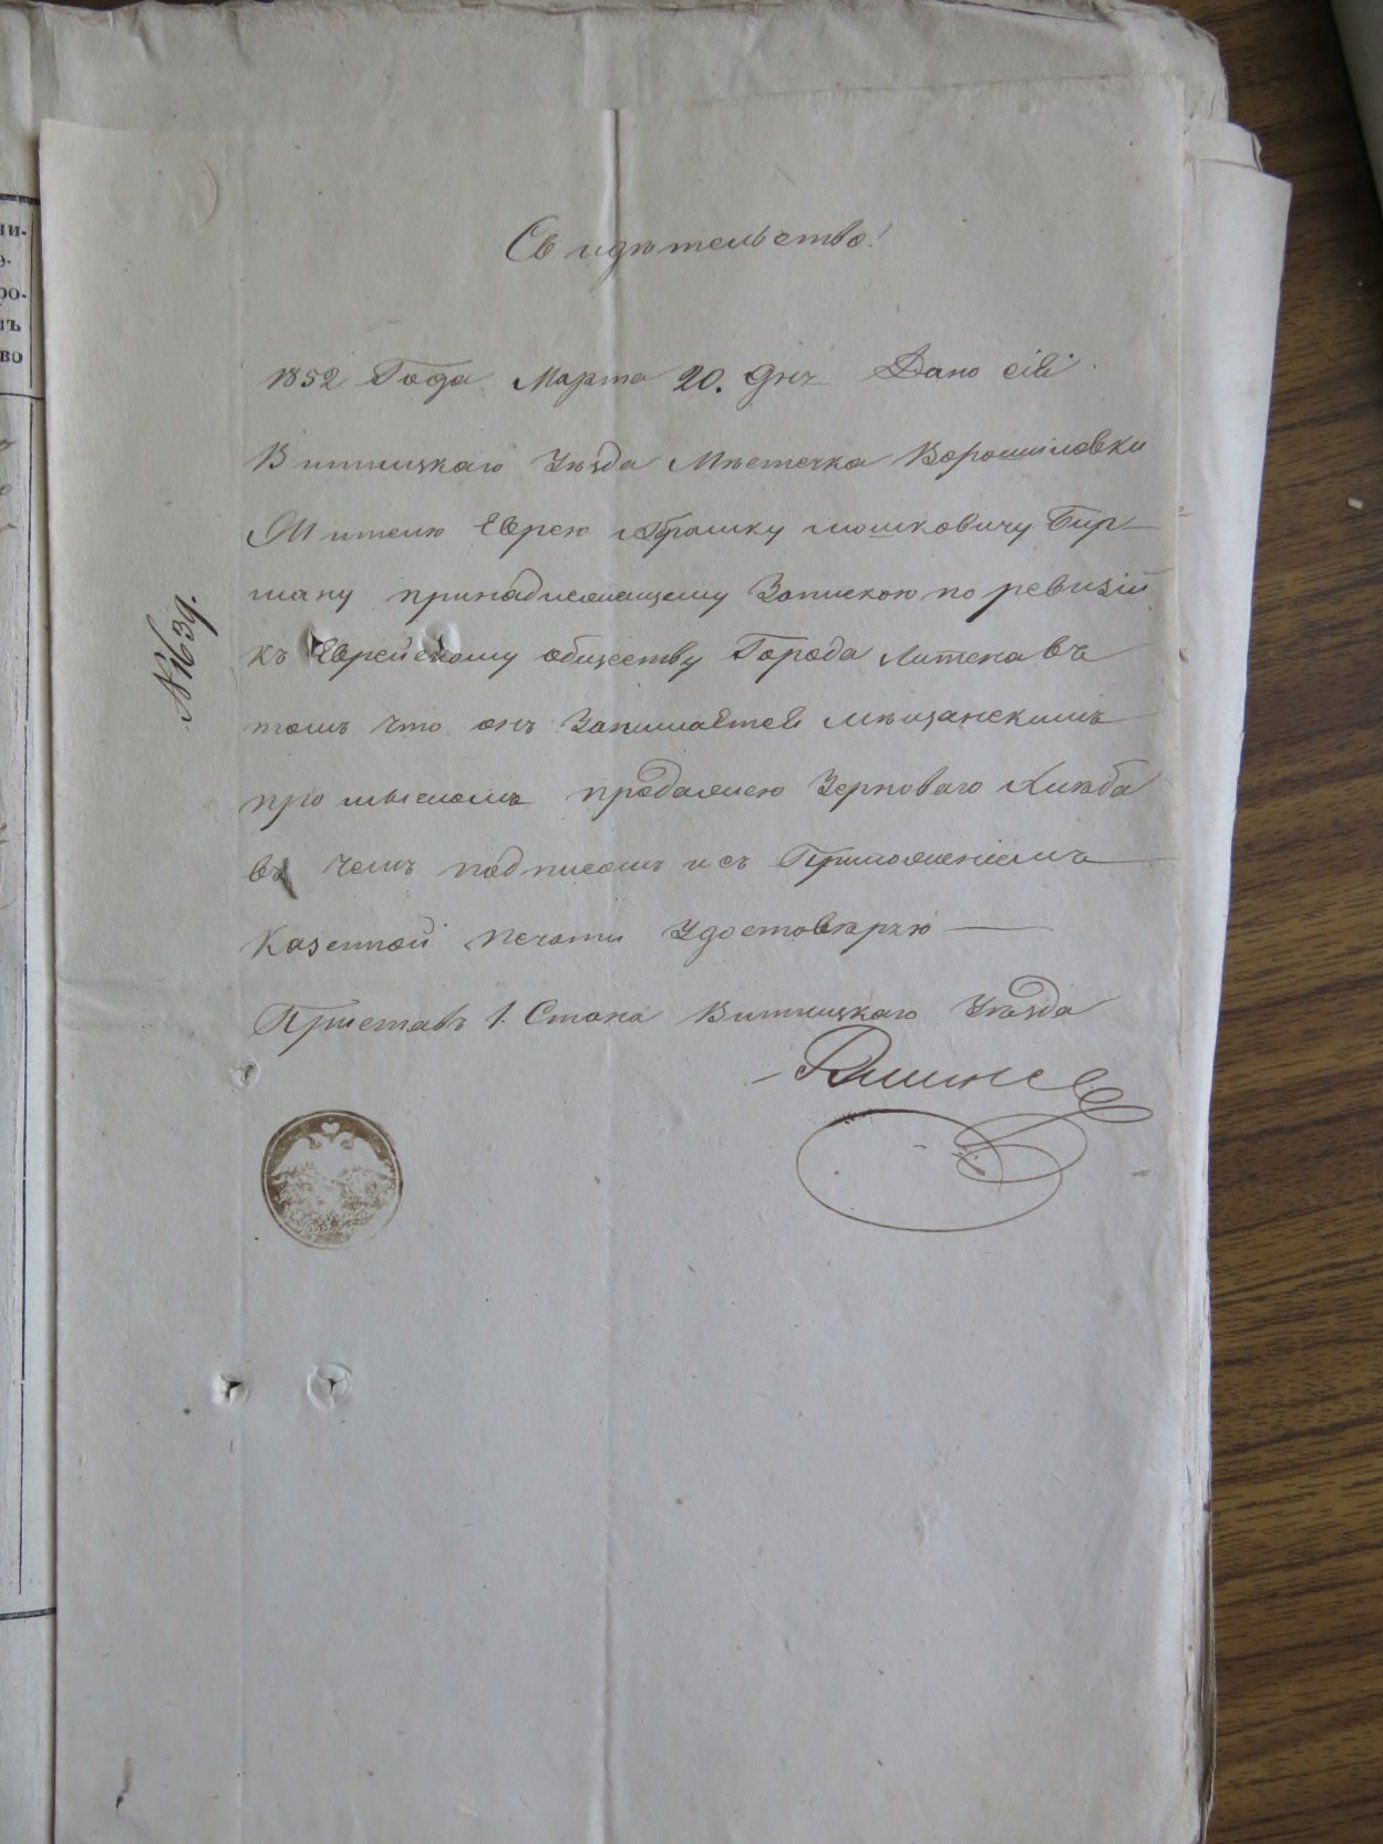 ли-
е-
ро-
тъ
во
Свидѣтельство!
1852 Года Марта 20. дня Дано сіе
Винницкаго Уѣзда Мѣстечка Ворошиловки
Жителю Еврею Абрашку Мошковичу Бир-
ману принадлежащему Запискою по ревизіи
къ Еврейскому обществу Города Литена въ
томъ что онъ Занимается мѣщанскимъ
промысломъ продажею Зерноваго Хлѣба
въ чемъ подписомъ и съ Приложеніемъ
Казенной печати Удостовѣряю
Приставъ 1. Стана Винницкаго Уѣзда
№ 1639.